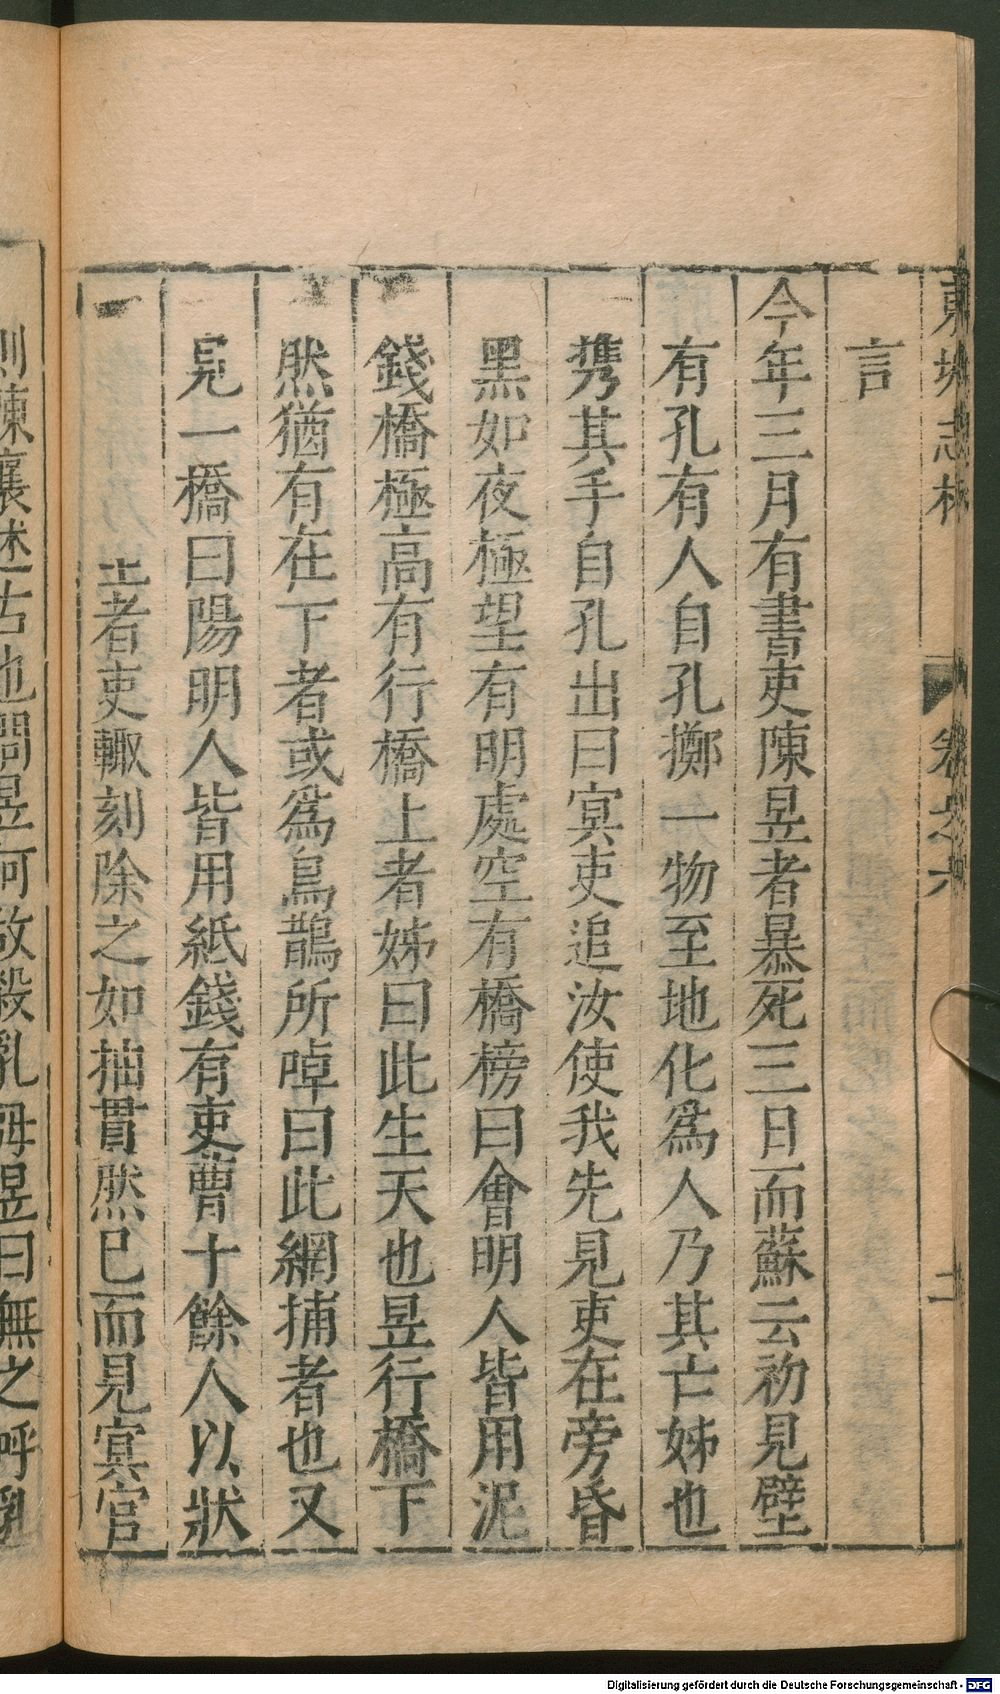 東坡志林 卷之六 二
言
今年三月有書吏陳昱者暴死三日而蘇云初見壁
有孔有人自孔擲一物至地化爲人乃其亡姊也
携其手自孔出曰冥吏追汝使我先見吏在旁昏
黑如夜極望有明處空有橋榜曰會明人皆用泥
錢橋極高有行橋上者姊曰此生天也昱行橋下
然猶有在下者或爲鳥鵲所啅曰此網捕者也又
見一橋曰陽明人皆用紙錢有吏曹十餘人以狀
上者吏輙刻除之如抽貫然已而見冥官
則陳襄述古也問昱何故殺乳母昱曰無之呼乳
Digitalisierung gefördert durch die Deutsche Forschungsgemeinschaft - DFG